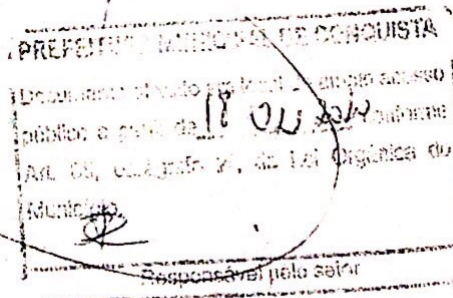 PREFEITURA MUNICIPAL DE CONQUISTA
Documento afixado em local de amplo acesso
público a partir de 18 conforme
Art. parágrafo da Lei Orgânica do
Município.
Responsável pelo setor